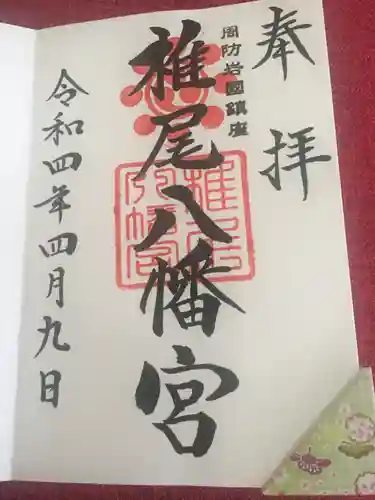 奉拝
周防岩國鎮座
椎尾八幡宮
椎尾八幡宮
令和四年四月九日